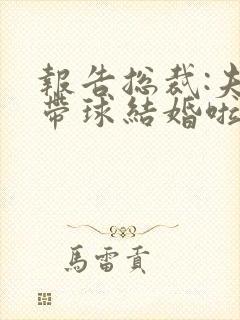 報告總裁:夫
帶球結婚啦
馬雷貢